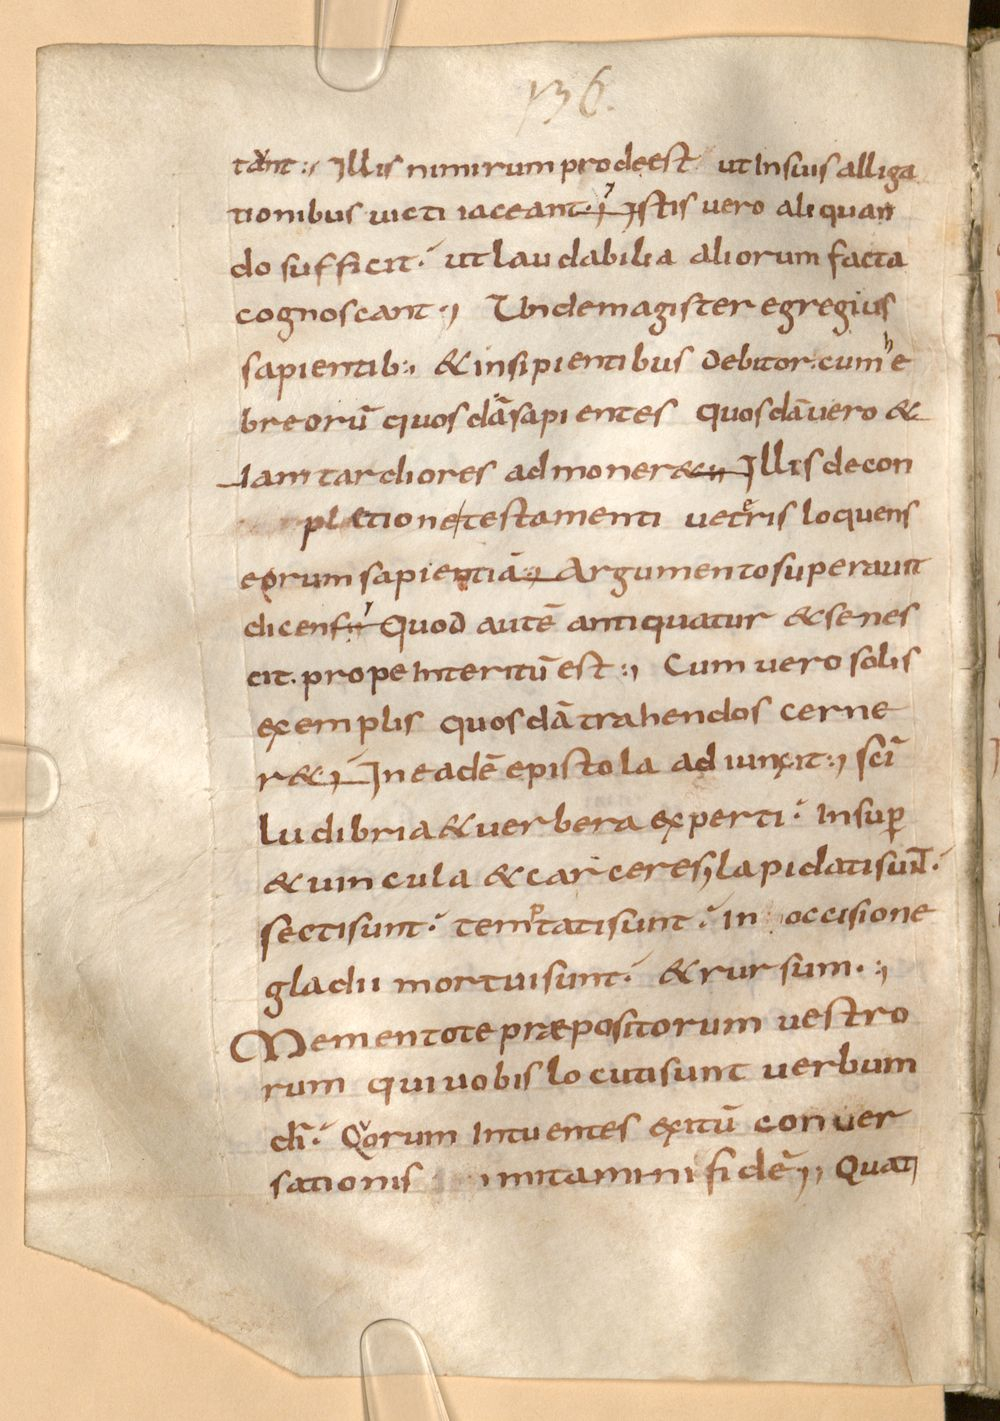 136.
tant:, Illis nimirum prodeest ut In suis alliga
tionibus uicti iaceant:, Istis uero aliquan
do sufficit. ut laudabilia aliorum facta
cognoscant:, Unde magister egregius
sapientib:, & insipientibus debitor. cum he
breorū quosdā sapientes quosdā uero &
iam tardiores admoner&:, Illis de con
plætione testamenti ueteris loquens
eorum sapientiā:, Argumento superauit
dicens:, Quod autē antiquatur & senes
cit. prope Interitū est:, Cum uero solis
exemplis quosdā trahendos cerne
r&:, In eadē epistola adiunxit:, sc̄i
ludibria & uerbera experti. Insup̱
& uincula & carceres, lapidati sunt.
secti sunt. temptati sunt. In occisione
gladii mortui sunt. & rursum.:,
Mementote præpositorum uestro
rum qui uobis locuti sunt uerbum
dī. Quorum Intuentes exitū conuer
sationis imitamini fidē:, Quati